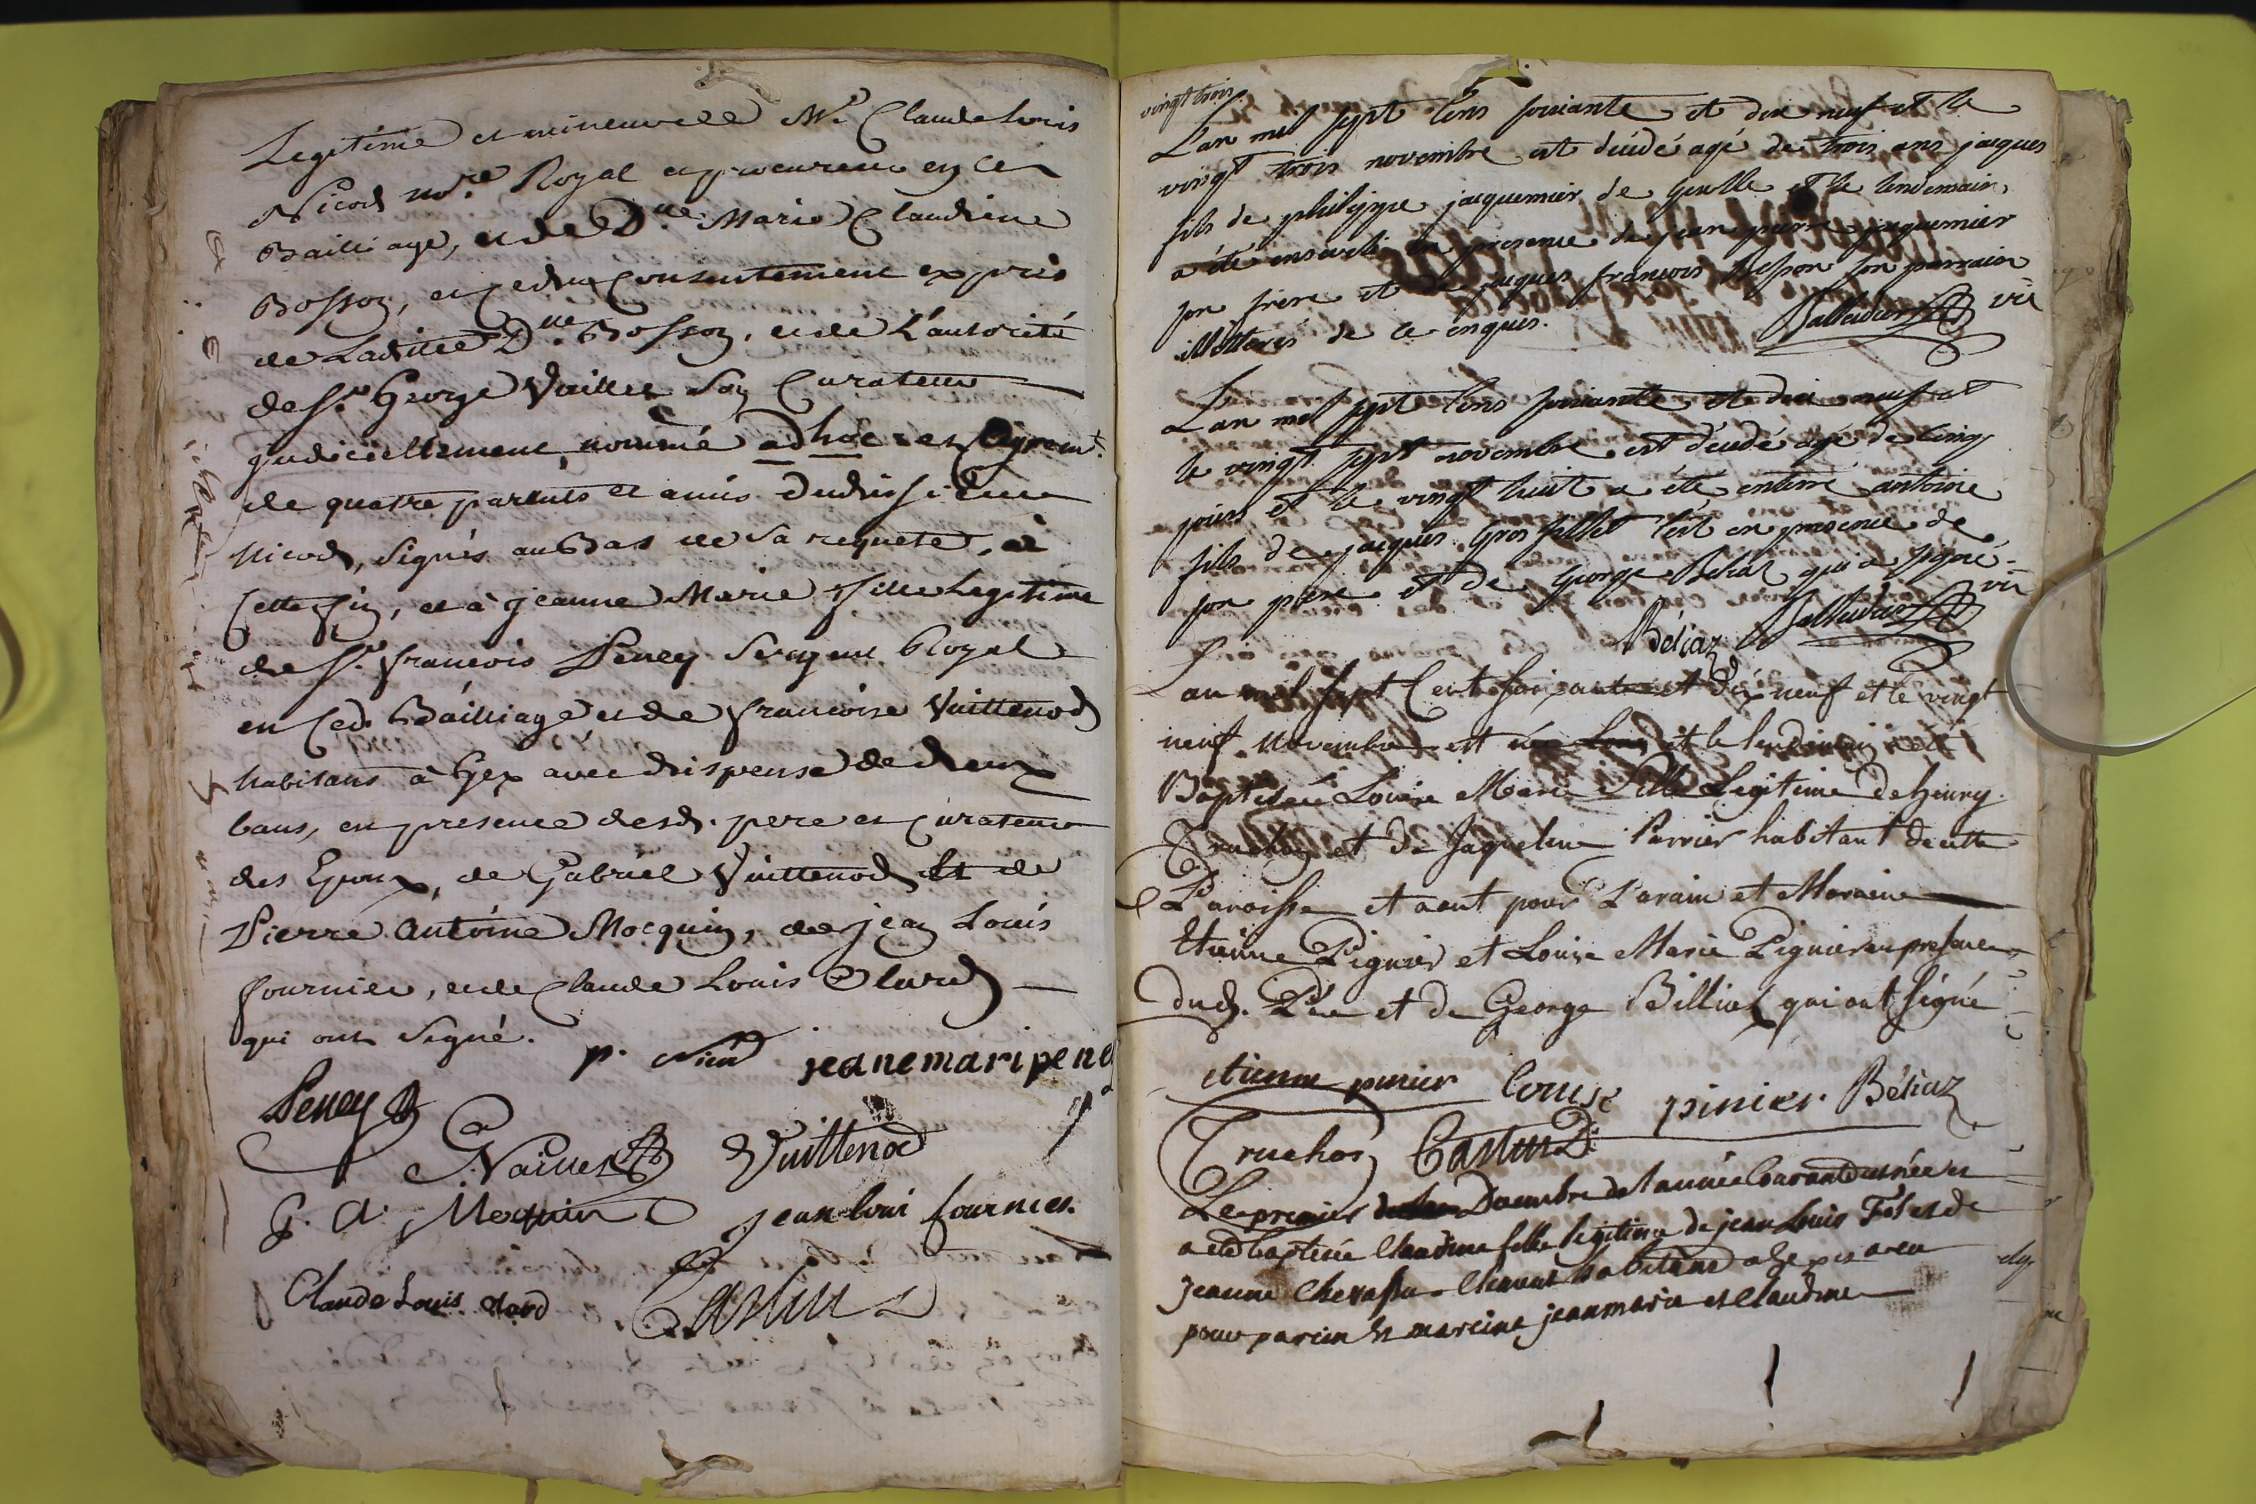 Legitime et mineur de Me. Claude Louis
Nicod nore. Royal et procureur en ce
Bailliage, et de Dlle. Marie Claudine
Bosson, et du Consentement exprès
de Ladite Dlle. Bosson, et de L'autorité
de Sr. George Vaillet son Curateur
judiciellement nommé ad hoc, et
de quatre parents et amis dudit sieur
Nicod, signés au Bas de sa requete, à
Cette fin, et à Jeanne Marie fille Legitime
de Sr. françois Peney Sergent Royal
en Ced. Bailliage et de françoise Vuittenod
habitans à Gex avec dispense de deux
bans, en presence desd. pere et Curateur
des Epoux, de Gabriel Vuittenod Et de
Pierre Antoine Mocquin, de jean Louis
fournier, et de Claude Louis olard
qui ont Signé.
p. Nicod jeanemaripeney
Peney
Vaillet Vuittenod
p. A. Mocquin jean loui fournier
Claude Louis olard Castin
vingt trois.
L'an mil sept Cens soixante et dix neuf et le
vingt trois novembre est décédé agé de trois ans jacques
fils de philippe jacquemier de et le lendemain,
a été enseveli en presence de jean pierre jacquemier
son frere et de jacques françois Besson son parrain
illitterés de ce enquis. vic
L'an mil sept Cens soixante et dix neuf et
le vingt sept novembre est décédé agé de Cinq
jours et le vingt huit a été enterré antoine
fils de jacques Gros fillet C'est en presence de
son père et de George Béliaz qui a signé.
Béliaz vic
L'an mil sept Cent soixante et dix neuf et le vingt
neuf Novembre est née et le lendemain
Baptisée Louise Marie fille Legitime de henry
Truchon et de Jaqueline Perrier habitant de cette
Paroisse et a eut pour Parain et Maraine
Etienne Pignier et Louise Marie Pignier en presence
dud. Pere et de George Billiaz qui ont signé
etienne pinier Louise pinier. Béliaz
Truchon Castin
Le premier Decembre de l'année Courante est née et
a eté baptisée Claudine fille legitime de jean Louis et de
jeanne Chevassu habitans a Gex et a eu
pour parein et mareine jeanmarie et Claudine